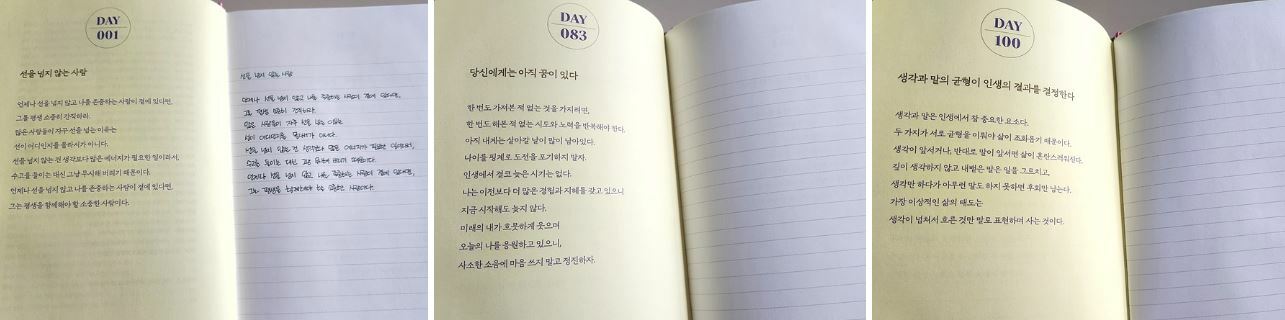 DAY
001
선을 넘지 않는 사람
언제나 선을 넘지 않고 나를 존중하는 사람이 곁에 있다면,
그를 평생 소중히 간직하라.
많은 사람들이 자꾸 선을 넘는 이유는
선이 어디인지를 몰라서가 아니다.
선을 넘지 않는 건 생각보다 많은 에너지가 필요한 일이라서,
수고를 들이는 대신 그냥 무시해 버리기 때문이다.
언제나 선을 넘지 않고 나를 존중하는 사람이 곁에 있다면,
그는 평생을 함께해야 할 소중한 사람이다.
선을 넘지 않는 사람
언제나 선을 넘지 않고 나를 존중하는 사람이 곁에 있다면,
그를 평생 소중히 간직하라.
많은 사람들이 자꾸 선을 넘는 이유는
선이 어디인지를 몰라서가 아니다.
선을 넘지 않는 건 생각보다 많은 에너지가 필요한 일이라서,
수고를 들이는 대신 그냥 무시해 버리기 때문이다.
언제나 선을 넘지 않고 나를 존중하는 사람이 곁에 있다면,
그는 평생을 함께해야 할 소중한 사람이다.
DAY
083
당신에게는 아직 꿈이 있다
한 번도 가져본 적 없는 것을 가지려면,
한 번도 해본 적 없는 시도와 노력을 반복해야 한다.
아직 내게는 살아갈 날이 많이 남아있다.
나이를 핑계로 도전을 포기하지 말자.
인생에서 결코 늦은 시기는 없다.
나는 이전보다 더 많은 경험과 지혜를 갖고 있으니
지금 시작해도 늦지 않다.
미래의 내가 흐뭇하게 웃으며
오늘의 나를 응원하고 있으니,
사소한 소음에 마음 쓰지 말고 정진하자.
DAY
100
생각과 말의 균형이 인생의 결과를 결정한다
생각과 말은 인생에서 참 중요한 요소다.
두 가지가 서로 균형을 이뤄야 삶이 조화롭기 때문이다.
생각이 앞서거나, 반대로 말이 앞서면 삶이 혼란스러워진다.
깊이 생각하지 않고 내뱉은 말은 일을 그르치고,
생각만 하다가 아무런 말도 하지 못하면 후회만 남는다.
가장 이상적인 삶의 태도는
생각이 넘쳐서 흐른 것만 말로 표현하며 사는 것이다.